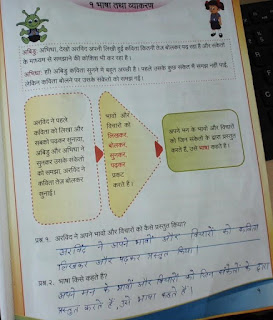 १ भाषा तथा व्याकरण
अबिडु: अभिधा, देखो अरविंद अपनी लिखी हुई कविता कितनी तेज़ बोलकर पढ़ रहा है और संकेतों
के माध्यम से समझाने की कोशिश भी कर रहा है।
अभिधा: हाँ! अबिडु कविता सुनने में बहुत अच्छी है। पहले उसके कुछ संकेत मैं समझ नहीं पाई,
लेकिन कविता बोलने पर उसके संकेतों को समझ गई।
अरविंद ने पहले
कविता को लिखा और
सबको पढ़कर सुनाया,
अबिडु और अभिधा ने
सुनकर उसके संकेतों
को समझा, अरविंद ने
कविता तेज़ बोलकर
सुनाई।
भावों और
विचारों को
लिखकर,
बोलकर,
सुनकर,
पढ़कर
प्रकट
करते हैं।
अपने मन के भावों और विचारों
को जिन संकेतों के द्वारा प्रस्तुत
करते हैं, उसे भाषा कहते हैं।
प्रश्न.१. अरविंद ने अपने भावों और विचारों को कैसे प्रस्तुत किया?
अरविंद ने अपने भावों और विचारों को कविता
लिखकर और पढ़कर प्रस्तुत किया।
प्रश्न.२. भाषा किसे कहते हैं?
अपने मन के भावों और विचारों को जिन संकेतों के द्वारा
प्रस्तुत करते हैं, उसे भाषा कहते हैं।